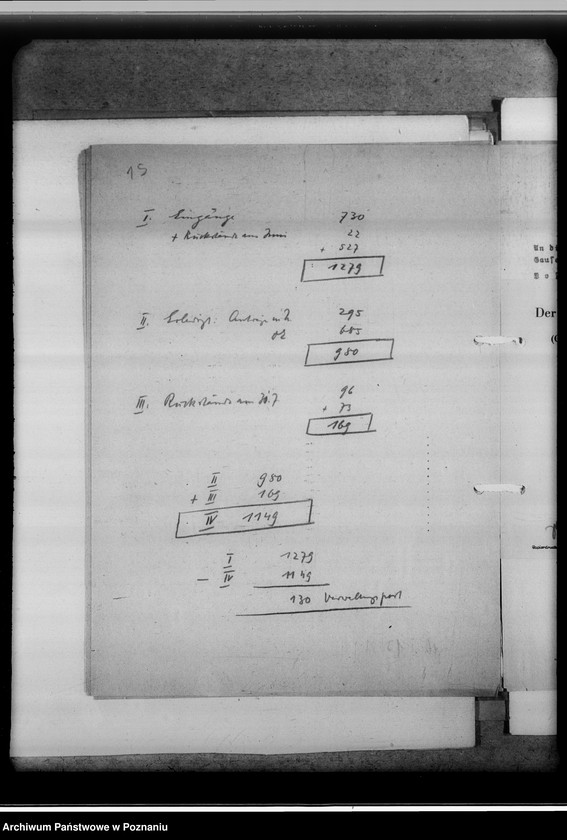 15
I. Eingänge 730
+ Rückstände aus Juni 22
+ 527
1279
II. Erledigt. Anträge mit 295
oh 685
980
III. Rückstände am 31.7 96
+ 73
169
II 980
+ III 169
IV 1149
I 1279
– IV 1149
130 Verwaltungspost
An di
Gaufa
Der
Archiwum Państwowe w Poznaniu